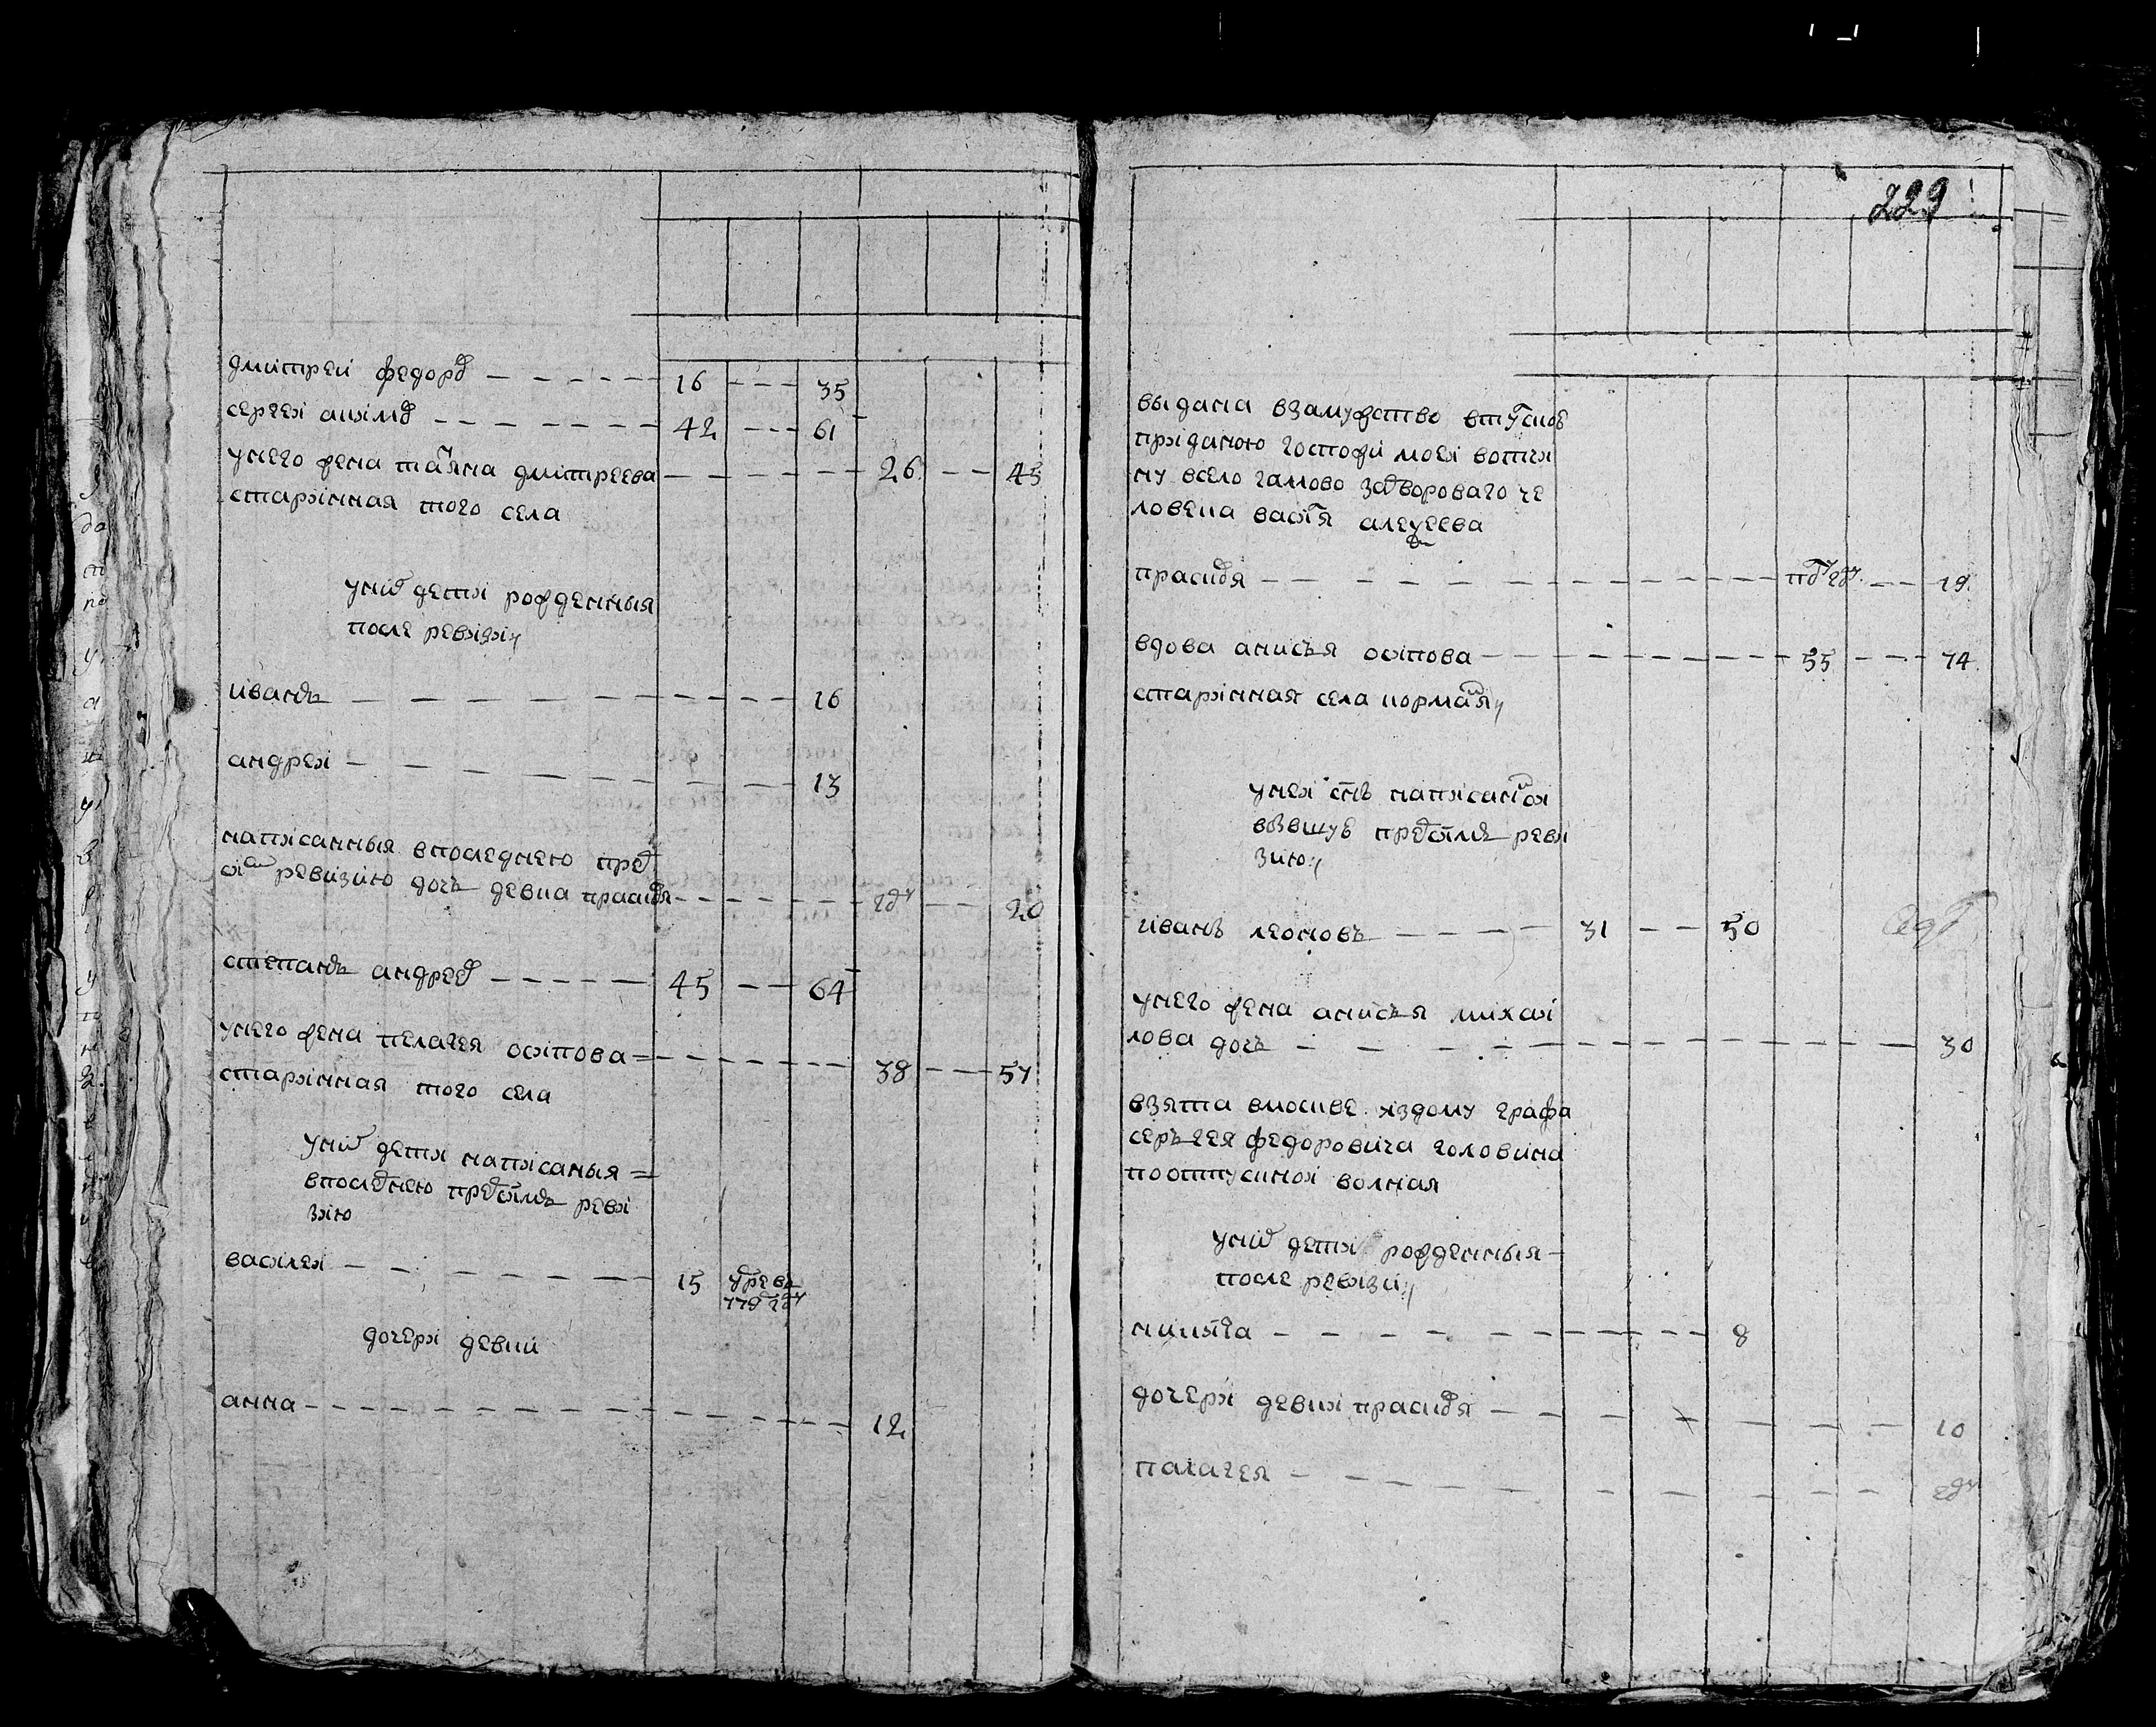 дмитрей федоров 16 35
сергей акимов 42 61
унего жена татьяна дмитреева 26 45
старинная того села
уних дети рожденныя
после ревизии
иванъ 16
андрей 13
написанныя впоследнею пред
сим ревизию дочь девка прасковя году 20
степанъ андреев 45 64
унего жена пелагея осипова 38 57
старинная того села
уних дети написаныя
впоследнею пред симъ реви
зию
василей 15
779 году
дочери девки
анна 12
229
выдана взамужство
приданою госпожи моей вотчи
ну всело гамово задвороваго че
ловека алексеева
прасковя 19
вдова анисья осипова 55 74
старинная села
унея снъ написанной
вбывшую пред симъ реви
зию
иванъ леоновъ 31 50
унего жена анисья михаи
лова дочь 30
взята вмоскве издому графа
серьгея федоровича головина
поотпускной волная
уних дети рожденныя
после ревизии
никита 8
дочери девки прасковя 10
палагея году